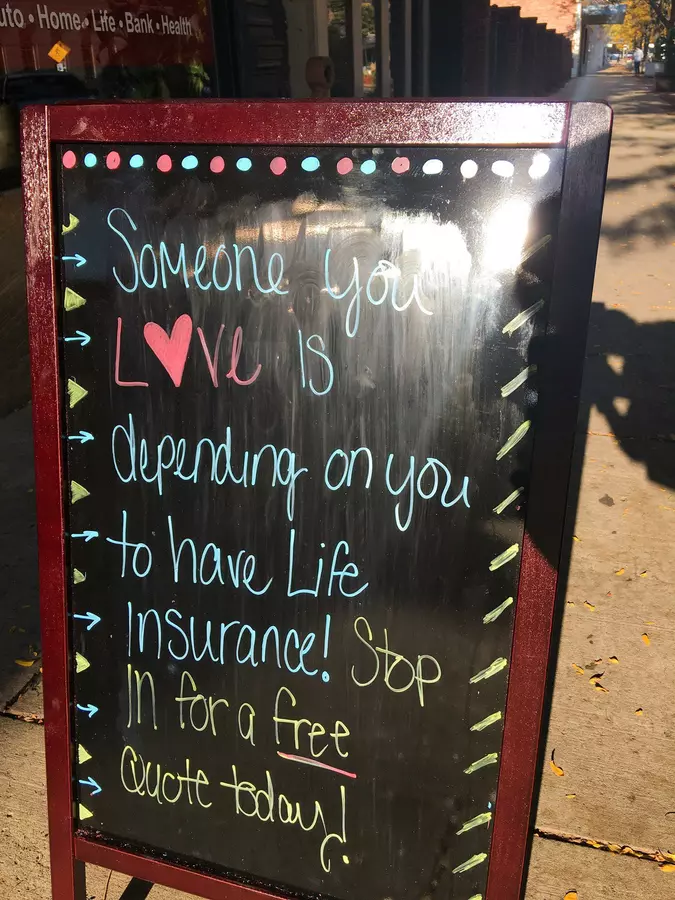 uto • Home • Life • Bank • Health
Someone you
Love is
depending on you
to have Life
Insurance! Stop
In for a free
Quote today!